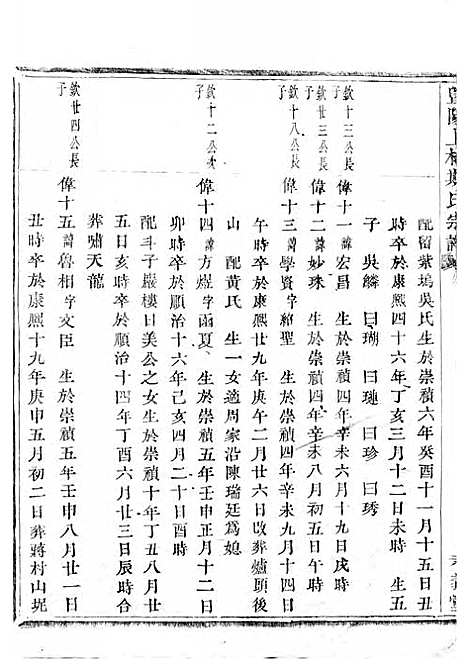 暨陽上林斯氏宗譜
配留紫塢吳氏生於崇禎六年癸酉十一月十五日丑
時卒於康熙四十六年丁亥三月十二日未時 生五
子 吳麟 曰瑚 曰璉 曰珍 曰琇
欽十三公長子 偉十一諱宏昌 生於崇禎四年辛未九月十九日戌時
欽廿三公長子 偉十二諱妙珠 生於崇禎四年辛未八月初五日午時
欽十八公長子 偉十三諱學賢字紹聖 生於崇禎四年辛未九月十四日
午時卒於康熙廿九年庚午二月廿六日改葬爐頭後
山 配黃氏 生一女適周家沿陳瑞廷為媳
欽十二公次子 偉十四諱方煜字函夏 生於崇禎五年壬申正月十四日
卯時卒於順治十六年己亥四月二十日酉時
配斗子巖樓日美公之女生於崇禎十年丁丑八月廿
五日亥時卒於順治十四年丁酉六月廿三日辰時合
葬嘯天龍
欽廿四公長子 偉十五諱魯相字文臣 生於崇禎五年壬申八月廿一日
丑時卒於康熙十九年庚申五月初二日葬蔣村山坭